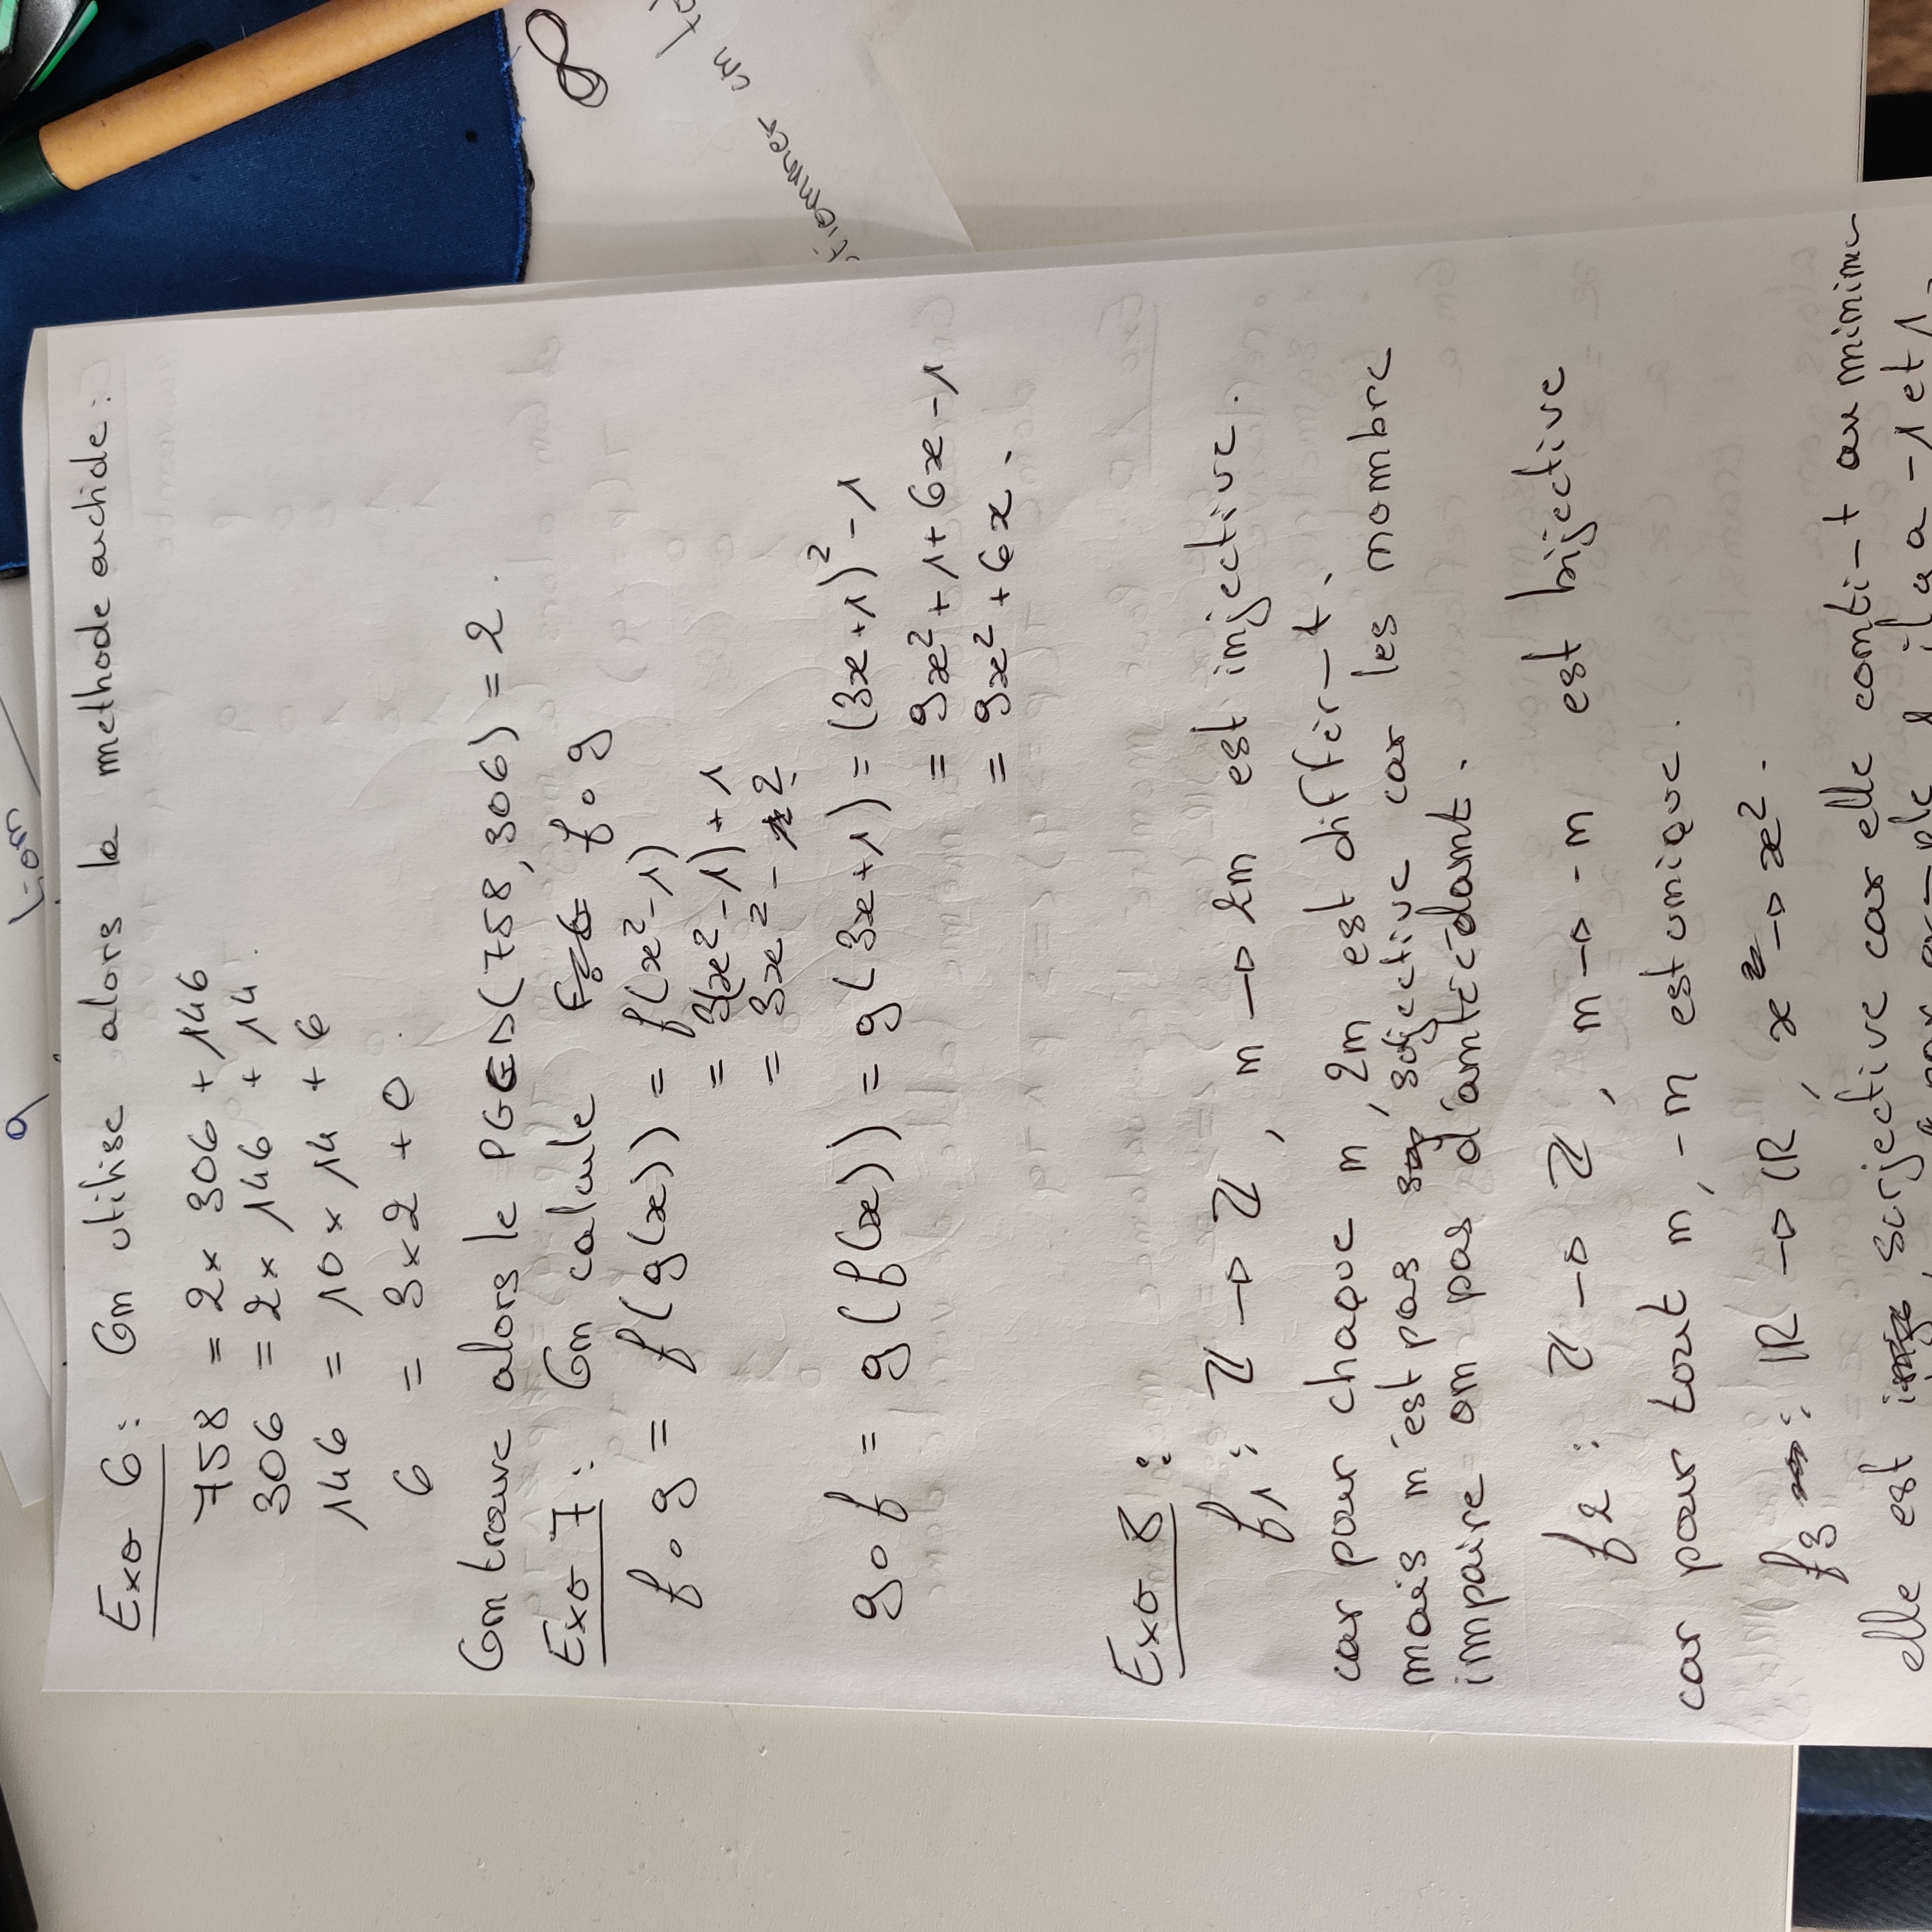 q
tion
Exo 6 : On utilise alors la methode euclide :
758 = 2 x 306 + 146
306 = 2 x 146 + 14.
146 = 10 x 14 + 6
6 = 3 x 2 + 0.
On trouve alors le PGCD(758, 306) = 2.
Exo 7 : On calcule f o g
f o g = f(g(x)) = f(x² - 1)
= 3(x² - 1) + 1
= 3x² - 2.
g o f = g(f(x)) = g(3x + 1) = (3x + 1)² - 1
= 9x² + 1 + 6x - 1
= 9x² + 6x.
Exo 8 :
f1 : ℤ → ℤ, n → 2n est injective.
car pour chaque n, 2n est différ-t.
mais n'est pas sojective car les nombre
impaire on pas d'antécédant.
f2 : ℤ → ℤ, n → -n est bijective
car pour tout n, -n est unique.
f3 : ℝ → ℝ, x → x².
elle est surjective car elle conti-t au minimum
par ex-mple il y a -1 et 1.
∞
ctionner un